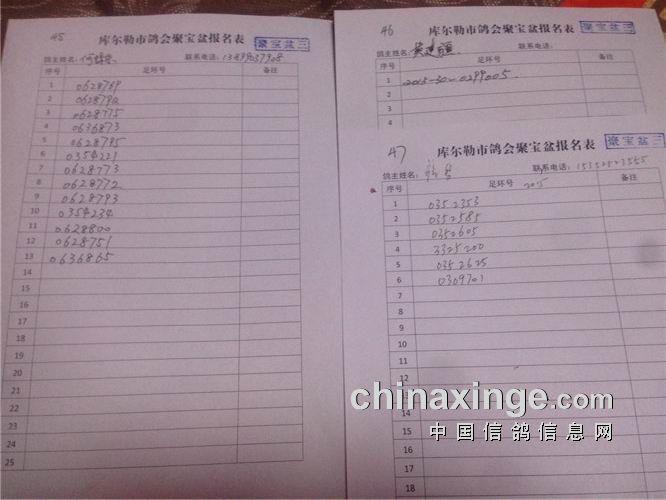 45
库尔勒市鸽会聚宝盆报名表
聚宝盆三
鸽主姓名：
联系电话：13899037908
序号 足环号 备注
1 0628769
2 0628792
3 0628775
4 0636873
5 0628795
6 0354221
7 0628773
8 0628772
9 0628793
10 0354234
11 0628800
12 0628751
13 0636865
14
15
16
17
18
19
20
21
22
23
24
25
46
库尔勒市鸽会聚宝盆报名表
聚宝盆三
鸽主姓名：
联系电话：
序号 足环号 备注
1 2015-30-0299005
2
3
4
47
库尔勒市鸽会聚宝盆报名表
聚宝盆三
鸽主姓名：
联系电话：
序号 足环号 2015 备注
1 0352353
2 0352585
3 0352605
4 3325200
5 0352625
6 0309701
7
8
9
10
11
12
14
15
16
17
18
chinaxinge.com
中国信鸽信息网